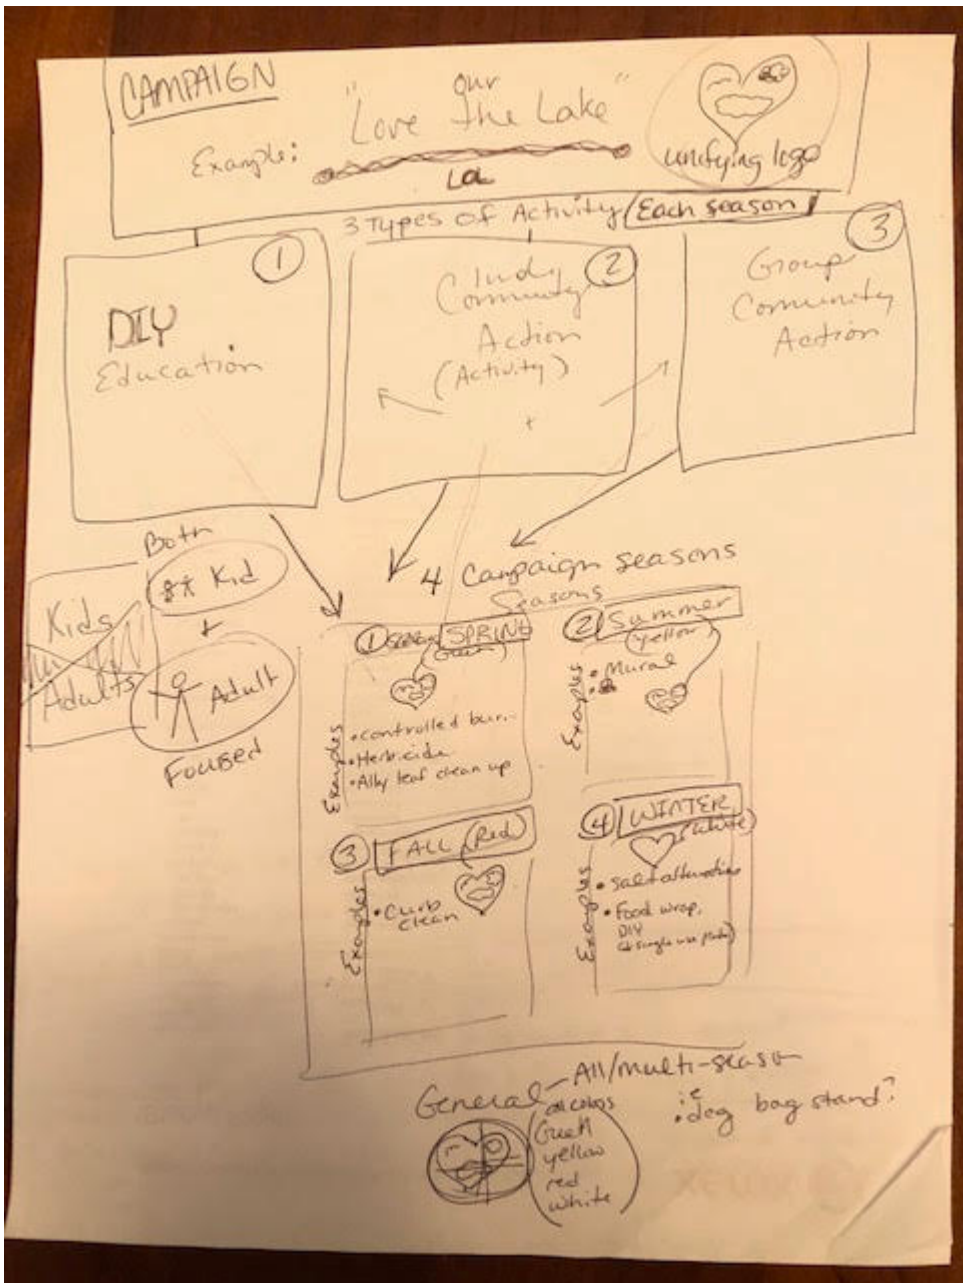 CAMPAIGN
our
"Love the Lake"
Example:
LOL
unifying logo
3 Types of Activity (Each season)
1
DIY
Education
2
Indy
Community
Action
(Activity)
+
3
Group
Community
Action
Both
Kids
Adults
Kid
+
Adult
Focused
4 Campaign seasons
Seasons
1 SPRING
(Green)
Examples
• controlled burn
• Herbicide
• Ally leaf clean up
2 Summer
(yellow)
Examples
• Mural
3 FALL (Red)
Examples
• Curb
clean
4 WINTER
(white)
Examples
• Salt alternatives
• Food wrap,
DIY
single use
General - All/multi-season
all colors
Green
yellow
red
white
i.e
• dog bag stand?